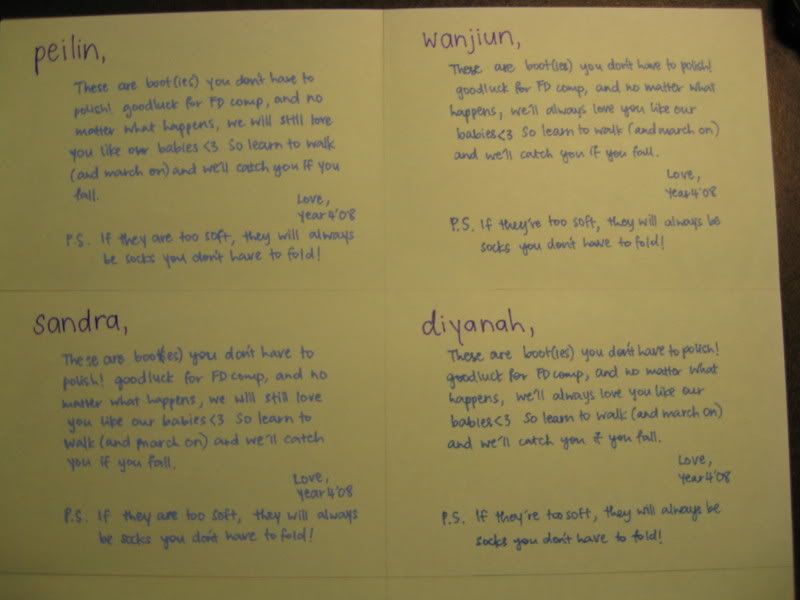 peilin,
These are boot(ies) you don't have to
polish! goodluck for FD comp, and no
matter what happens, we will still love
you like our babies <3 So learn to walk
(and march on) and we'll catch you if you
fall.
Love,
Year 4'08
P.S. If they are too soft, they will always
be socks you don't have to fold!
wanjiun,
These are boot(ies) you don't have to polish!
goodluck for FD comp, and no matter what
happens, we'll always love you like our
babies <3 So learn to walk (and march on)
and we'll catch you if you fall.
Love,
Year 4'08
P.S. If they're too soft, they will always be
socks you don't have to fold!
sandra,
These are boot(ies) you don't have to
polish! goodluck for FD comp, and no
matter what happens, we will still love
you like our babies <3 So learn to
walk (and march on) and we'll catch
you if you fall.
Love,
Year 4'08
P.S. If they are too soft, they will always
be socks you don't have to fold!
diyanah,
These are boot(ies) you don't have to polish!
goodluck for FD comp, and no matter what
happens, we'll always love you like our
babies <3 So learn to walk (and march on)
and we'll catch you if you fall.
Love,
Year 4'08
P.S. If they're too soft, they will always be
socks you don't have to fold!